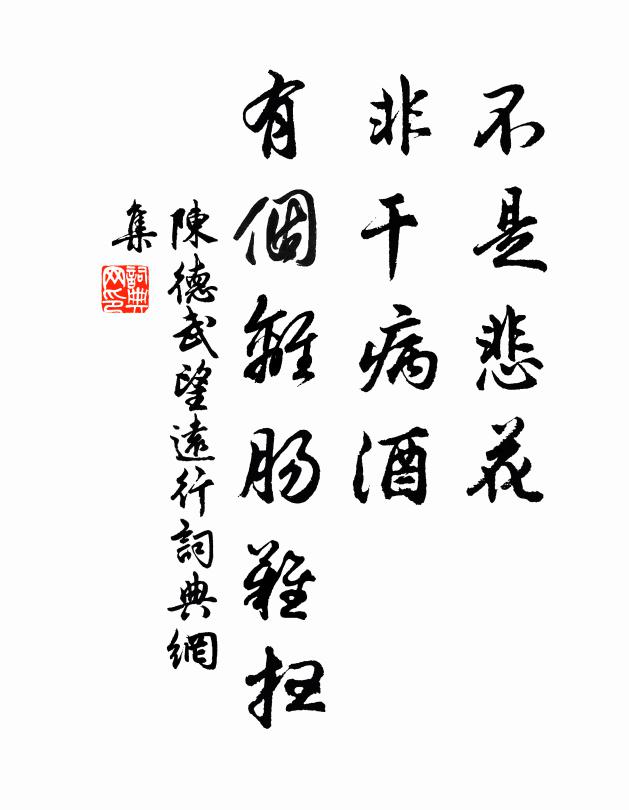 不是悲花
非干病酒
有個離腸難扫
陳德武望遠行詞典網
集
詞典网印